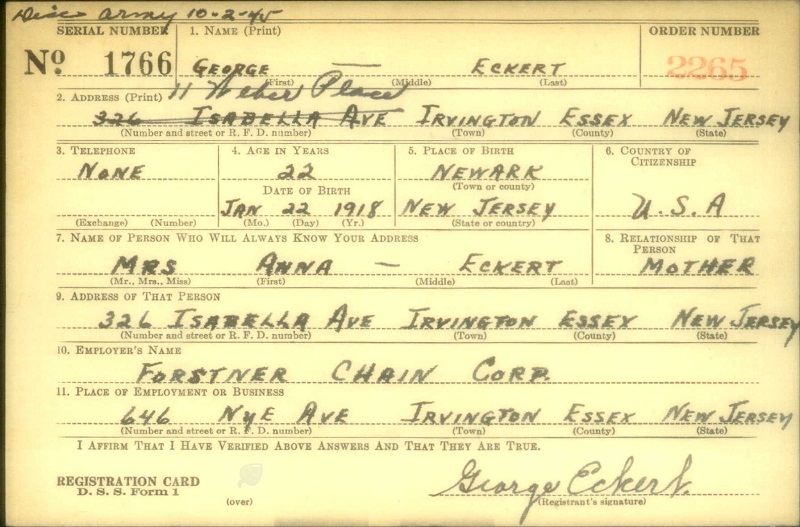 Disc Army 10-2-45
SERIAL NUMBER 1. NAME (Print) ORDER NUMBER
No 1766 GEORGE — ECKERT 2265
(First) (Middle) (Last)
11 Weber Place
2. ADDRESS (Print)
326 ISABELLA AVE IRVINGTON ESSEX NEW JERSEY
(Number and street or R. F. D. number) (Town) (County) (State)
3. TELEPHONE 4. AGE IN YEARS 5. PLACE OF BIRTH 6. COUNTRY OF CITIZENSHIP
NONE 22 NEWARK
(Town or county)
DATE OF BIRTH
JAN 22 1918 NEW JERSEY U.S.A
(Exchange) (Number) (Mo.) (Day) (Yr.) (State or country)
7. NAME OF PERSON WHO WILL ALWAYS KNOW YOUR ADDRESS 8. RELATIONSHIP OF THAT PERSON
MRS ANNA — ECKERT MOTHER
(Mr., Mrs., Miss) (First) (Middle) (Last)
9. ADDRESS OF THAT PERSON
326 ISABELLA AVE IRVINGTON ESSEX NEW JERSEY
(Number and street or R. F. D. number) (Town) (County) (State)
10. EMPLOYER'S NAME
FORSTNER CHAIN CORP.
11. PLACE OF EMPLOYMENT OR BUSINESS
646 NYE AVE IRVINGTON ESSEX NEW JERSEY
(Number and street or R. F. D. number) (Town) (County) (State)
I AFFIRM THAT I HAVE VERIFIED ABOVE ANSWERS AND THAT THEY ARE TRUE.
REGISTRATION CARD
D. S. S. Form 1
George Eckert.
(over) (Registrant's signature)